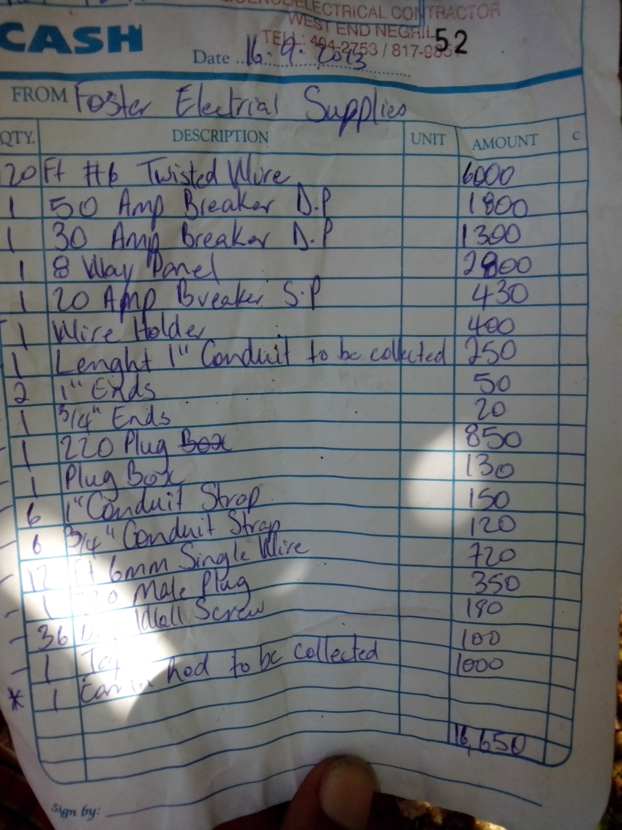 ELECTRICAL CONTRACTOR
WEST END NEGRIL
CASH
52
Date 16.9.2013
FROM Foster Electrial Supplies
QTY. DESCRIPTION UNIT AMOUNT C
20 Ft #6 Twisted Wire 6000
1 50 Amp Breaker D.P 1800
1 30 Amp Breaker D.P 1300
1 8 Way Panel 2800
1 20 Amp Breaker S.P 430
1 Wire Holder 400
1 Lenght 1" Conduit to be collected 250
2 1" Ends 50
1 3/4" Ends 20
1 220 Plug Box 850
1 Plug Box 130
6 1" Conduit Strap 150
6 3/4" Conduit Strap 120
12 Ft 6mm Single Wire 720
1 Male Plug 350
36 Wall Screw 180
1 100
1 rod to be collected 1000
16,650
Sign by: